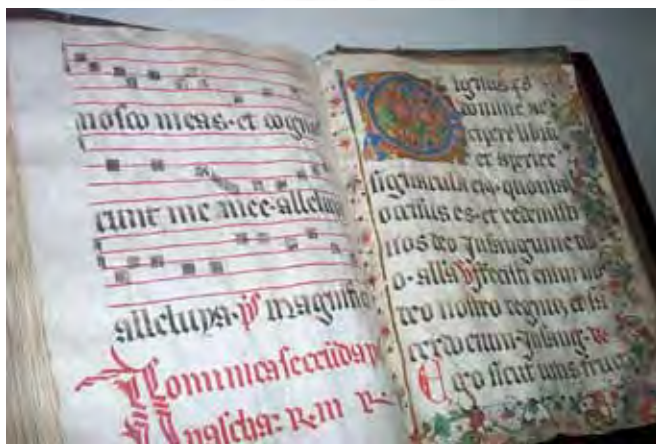 nosco meas·et cogno
cunt me mee·alleluya
alleluya· magnifi
Dominica secūda p
pascha: R.
Dignus es
domine ac
cipere librū
et aperire
signacula eiꝰ·quoniā
occisus es·et redemisti
nos deo In sanguine tu
o·alla fecisti enim no
deo nostro regnū, et sa
cerdocium·In sang·
Ego sicut uitis fruc